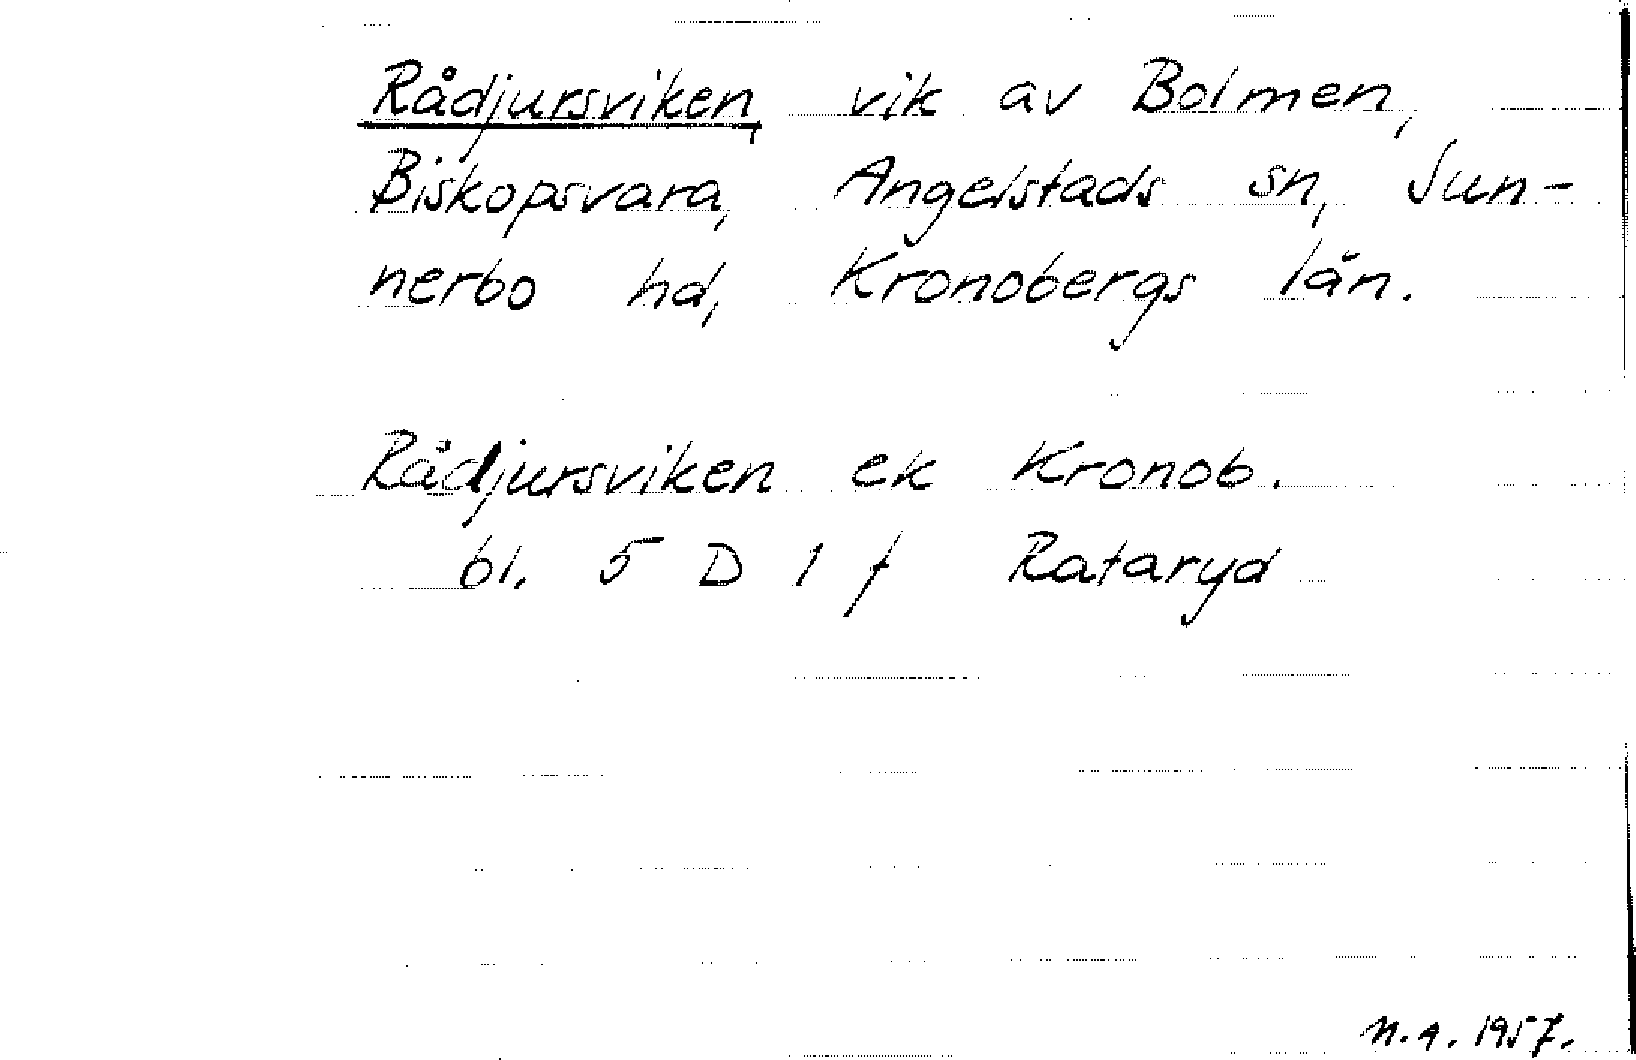 Rådjursviken, vik av Bolmen,
Biskopsvara, Angelstads sn, Sun-
nerbo hd, Kronobergs län.
Rådjursviken ek Kronob.
bl. 5 D 1 f Rataryd
n.a. 1957.